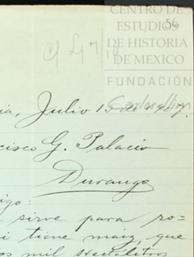 CENTRO DE
ESTUDIOS
DE HISTORIA
DE MEXICO
FUNDACIÓN
56
ia, Julio 15 de
cisco G. Palacio
Durango
igo:
sirve para ro-
i tiene maiz, que
os mil